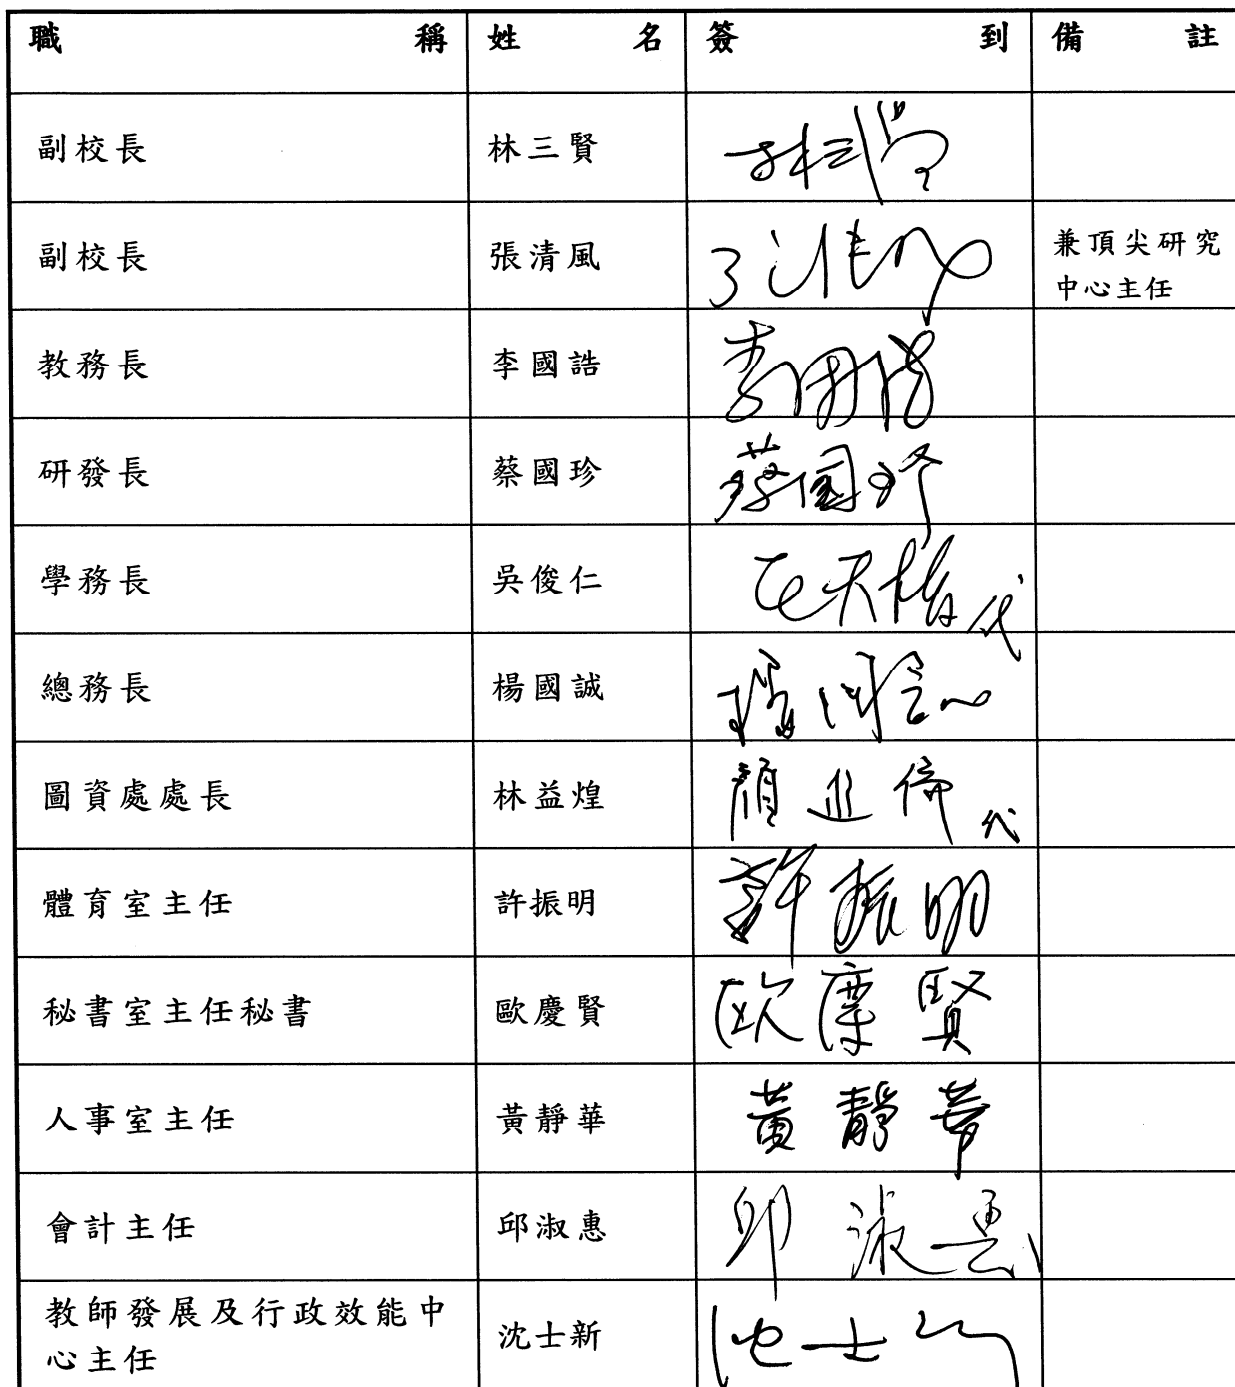 職稱 姓名 簽到 備註
副校長 林三賢 林三賢
副校長 張清風 兼頂尖研究
中心主任
教務長 李國誥 李國誥
研發長 蔡國珍 蔡國珍
學務長 吳俊仁 代
總務長 楊國誠 楊國誠
圖資處處長 林益煌 代
體育室主任 許振明 許振明
秘書室主任秘書 歐慶賢 欧慶賢
人事室主任 黃靜華 黃靜華
會計主任 邱淑惠 邱淑惠
教師發展及行政效能中
心主任 沈士新 沈士新